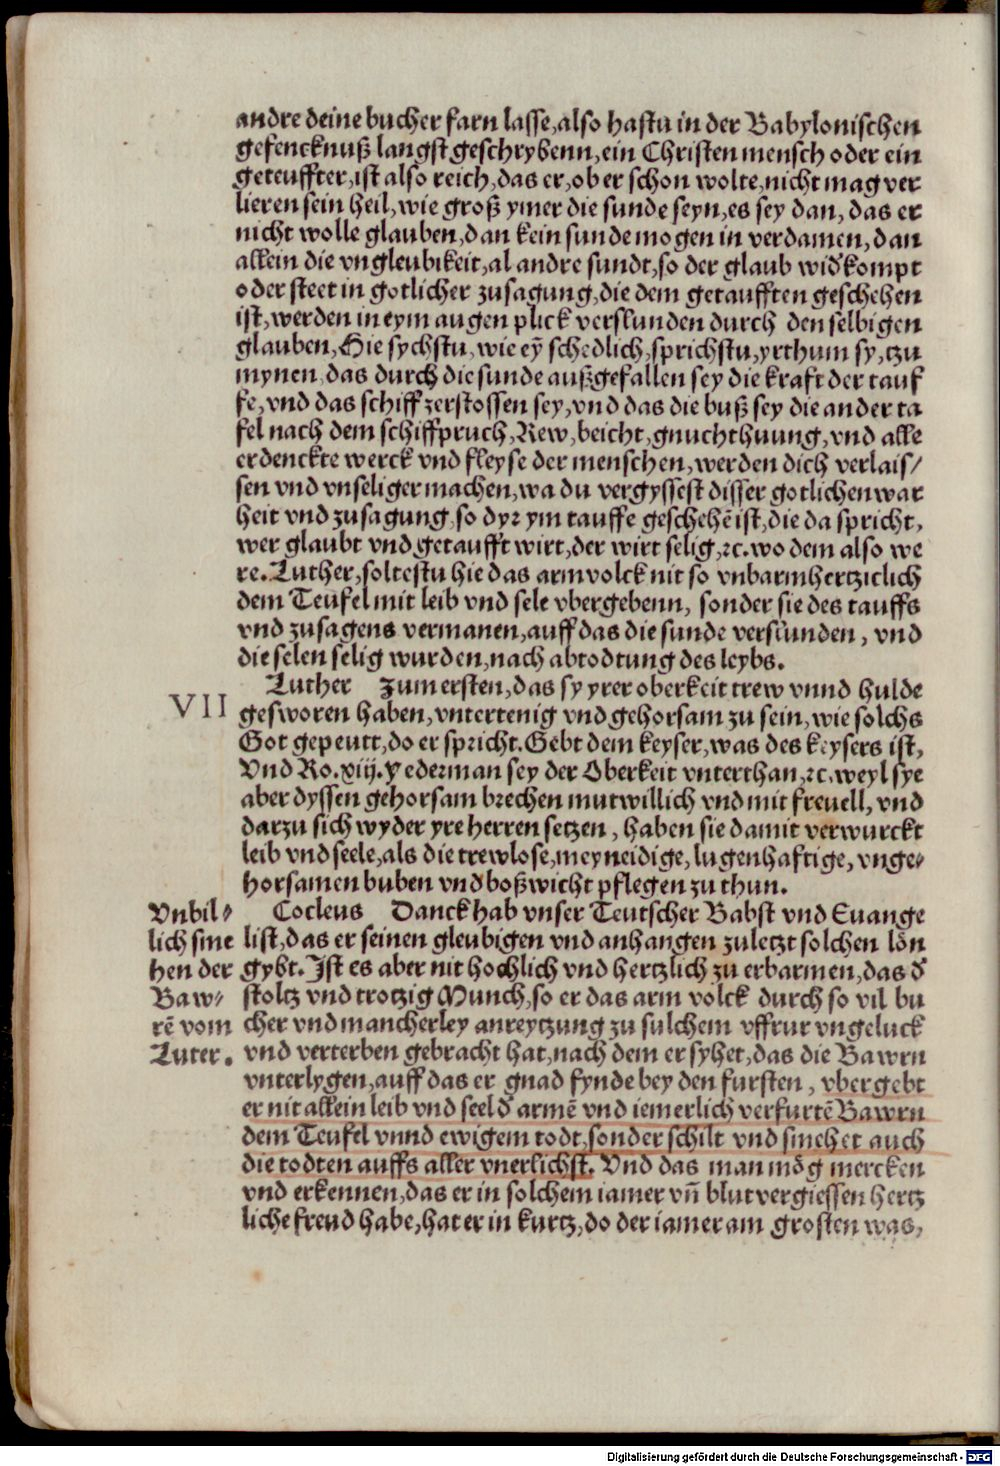 andre deine bucher farn lasse, also hastu in der Babylonischen
gefencknuß langst geschrybenn, ein Christen mensch oder ein
geteuffter, ist also reich, das er, ob er schon wolte, nicht mag ver
lieren sein heil, wie groß ymer die sunde seyn, es sey dan, das er
nicht wolle glauben, dan kein sunde mogen in verdamen, dan
allein die vngleubikeit, al andre sundt, so der glaub wid' kompt
oder steet in gotlicher zusagung, die dem getaufften geschehen
ist, werden in eym augen plick verslunden durch den selbigen
glauben, Hie sychstu, wie eȳ schedlich, sprichstu, yrthum sy, tzu
mynen, das durch die sunde außgefallen sey die kraft der tauf
fe, vnd das schiff zerstossen sey, vnd das die buß sey die ander ta
fel nach dem schiffpruch, Rew, beicht, gnuchthuung, vnd alle
erdenckte werck vnd fleyse der menschen, werden dich verlais/
sen vnd vnseliger machen, wa du vergyssest disser gotlichen war
heit vnd zusagung, so dyr ym tauffe geschehē ist, die da spricht,
wer glaubt vnd getaufft wirt, der wirt selig, ꝛc. wo dem also we
re. Luther, soltestu hie das arm volck nit so vnbarmhertziclich
dem Teufel mit leib vnd sele vbergebenn, sonder sie des tauffs
vnd zusagens vermanen, auff das die sunde verslunden, vnd
die selen selig wurden, nach abtodtung des leybs.
Luther zum ersten, das sy yrer oberkeit trew vnnd hulde
VII
gesworen haben, vntertenig vnd gehorsam zu sein, wie solchs
Got gepeutt, do er spricht. Gebt dem keyser, was des keysers ist,
Vnd Ro. xiij. Yederman sey der Oberkeit vnterthan, ꝛc. weyl sye
aber dyssen gehorsam brechen mutwillich vnd mit freuell, vnd
darzu sich wyder yre herren setzen, haben sie damit verwurckt
leib vnd seele, als die trewlose, meyneidige, lugenhaftige, vnge⸗
horsamen buben vnd boßwicht pflegen zu thun.
Vnbil⸗
lich sme
hen der
Baw⸗
rē vom
Luter.
Cocleus Danck hab vnser Teutscher Babst vnd Euange
list, das er seinen gleubigen vnd anhangen zuletzt solchen lön
gybt. Ist es aber nit hochlich vnd hertzlich zu erbarmen, das d'
stoltz vnd trotzig Munch, so er das arm volck durch so vil bu
cher vnd mancherley anreytzung zu sulchem vffrur vngeluck
vnd verterben gebracht hat, nach dem er syhet, das die Bawrn
vnterlygen, auff das er gnad fynde bey den fursten, vbergebt
er nit allein leib vnd seel d' armē vnd iemerlich verfurtē Bawrn
dem Teufel vnnd ewigem todt, sonder schilt vnd smehet auch
die todten auffs aller vnerlichst. Vnd das man mög mercken
vnd erkennen, das er in solchem iamer vn̄ blutvergiessen hertz
liche freud habe, hat er in kurtz, do der iamer am grosten was,
Digitalisierung gefördert durch die Deutsche Forschungsgemeinschaft - DFG